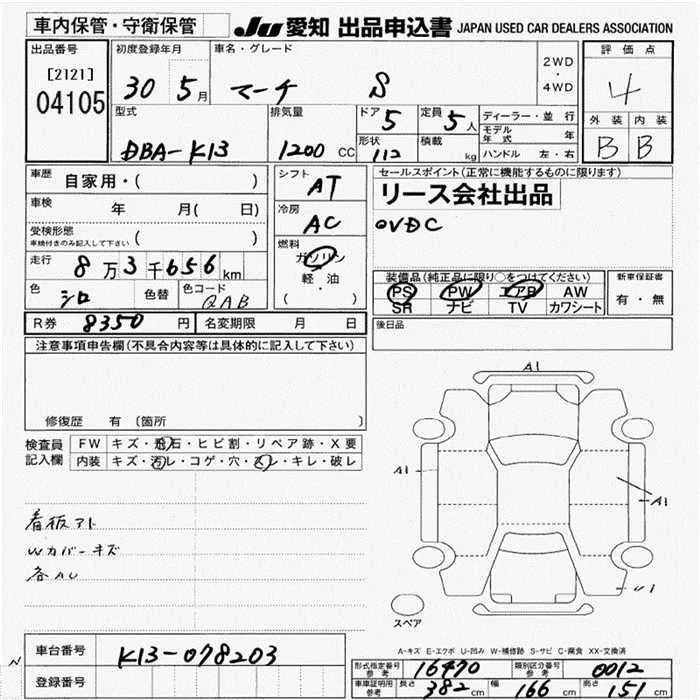 車内保管・守衛保管 JU 愛知 出品申込書 JAPAN USED CAR DEALERS ASSOCIATION
出品番号 初度登録年月 車名・グレード 2WD ・ 4WD 評価点
[2121] 30 5月 マーチ S 4
04105
型式 排気量 ドア 5 定員 5人 ディーラー・並行 外装 内装
モデル年式 年
DBA-K13 1200 CC 形状 112 積載 kg ハンドル 左・右 B B
車歴 自家用・( ) シフト AT セールスポイント(正常に機能するものに限ります)
リース会社出品
車検 年 月( 日) 冷房 AC OVDC
受検形態 車検付きのみ記入して下さい ( )
燃料 ガソリン
走行 8万3千656km 軽・油 装備品(純正品に限り○をつけてください) 新車保証書
色 シロ 色替 色コード QAB ( ・ ) PS PW エアB AW 有・無
SR ナビ TV カワシート
R券 8350円 名変期限 月 日 後日品
注意事項申告欄(不具合内容等は具体的に記入して下さい)
修復歴 有 〔箇所 〕
検査員 FW キズ・飛石・ヒビ割・リペア跡・X要
記入欄 内装 キズ・汚レ・コゲ・穴・スレ・キレ・破レ
A1
A1
A1
U1
看板アト
Wカバーキズ
各AU
スペア
A-キズ E-エクボ U-凹み W-補修跡 S-サビ C-腐食 XX-交換済
車台番号 K13-078203
形式指定番号 参考 16470 類別区分番号 参考 0012
登録番号
車庫証明用 参考 長さ 382cm 幅 166cm 高さ 151cm